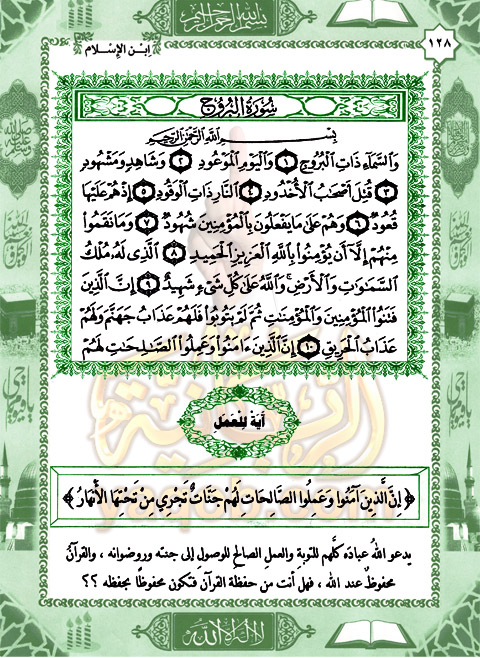 بسم الله الرحمن الرحيم
ابن الإسلام
١٢٨
سُورَةُ الْبُرُوجِ
بِسْمِ اللَّهِ الرَّحْمَٰنِ الرَّحِيمِ
وَالسَّمَاءِ ذَاتِ الْبُرُوجِ ١ وَالْيَوْمِ الْمَوْعُودِ ٢ وَشَاهِدٍ وَمَشْهُودٍ
٣ قُتِلَ أَصْحَابُ الْأُخْدُودِ ٤ النَّارِ ذَاتِ الْوَقُودِ ٥ إِذْ هُمْ عَلَيْهَا
قُعُودٌ ٦ وَهُمْ عَلَىٰ مَا يَفْعَلُونَ بِالْمُؤْمِنِينَ شُهُودٌ ٧ وَمَا نَقَمُوا
مِنْهُمْ إِلَّا أَن يُؤْمِنُوا بِاللَّهِ الْعَزِيزِ الْحَمِيدِ ٨ الَّذِي لَهُ مُلْكُ
السَّمَاوَاتِ وَالْأَرْضِ ۚ وَاللَّهُ عَلَىٰ كُلِّ شَيْءٍ شَهِيدٌ ٩ إِنَّ الَّذِينَ
فَتَنُوا الْمُؤْمِنِينَ وَالْمُؤْمِنَاتِ ثُمَّ لَمْ يَتُوبُوا فَلَهُمْ عَذَابُ جَهَنَّمَ وَلَهُمْ
عَذَابُ الْحَرِيقِ ١٠ إِنَّ الَّذِينَ آمَنُوا وَعَمِلُوا الصَّالِحَاتِ لَهُمْ
آيَةٌ لِلْعَمَلِ
﴿ إِنَّ الَّذِينَ آمَنُوا وَعَمِلُوا الصَّالِحَاتِ لَهُمْ جَنَّاتٌ تَجْرِي مِنْ تَحْتِهَا الأَنْهَارُ ﴾
يدعو اللهُ عبادَه كلَّهم للتوبةِ والعملِ الصالحِ للوصولِ إلى جنته ورضوانه ، والقرآنُ
محفوظٌ عند الله ، فهل أنت من حفظة القرآن فتكون محفوظًا بحفظه ؟؟
لا إله إلا الله